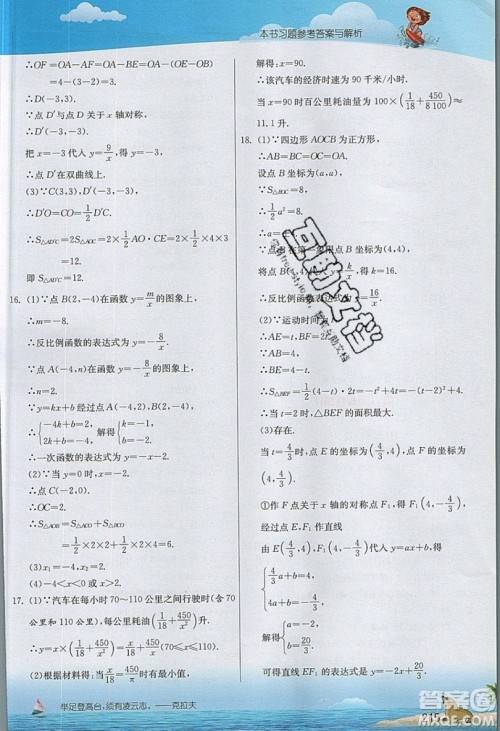 本书习题参考答案与解析
∴OF=OA-AF=OA-BE=OA-(BC-CE)
=4-(3-2)=3.
∴D′(-3,-3).
∵点D′与点D关于原点对称,
把x=-3代入y=9/x,得y=-3,
∴点D′在双曲线上.
(3)∵C(3,3),D′(-3,-3),
∴D′O=CO=1/2 D′C.
∴S△AD′C=2S△AOC=2×1/2 AO·CE=2×1/2×4×3
=12.
即S△AD′C=12.
16. (1)∵点B(2,-4)在函数y=m/x的图象上,
∴m=-8.
∴反比例函数的表达式为y=-8/x.
∵点A(-4,n)在函数y=-8/x的图象上,
∴n=2.
∴A(-4,2).
∵y=kx+b经过点A(-4,2),B(2,-4),
∴{-4k+b=2, 2k+b=-4, 解得{k=-1, b=-2.
∴一次函数的表达式为y=-x-2.
(2)∵当y=0时,x=-2.
∴点C(-2,0).
∴OC=2.
∴S△AOB=S△ACO+S△BCO
=1/2×2×2+1/2×2×4=6.
(3)x=-4,x=2.
(4)-4<x<0或x>2.
17. (1)∵汽车在每小时70~110公里之间行驶时(含70
公里和110公里),每公里耗油(1/18+450/x²)升.
∴y=x·(1/18+450/x²)=x/18+450/x(70≤x≤110).
(2)根据材料得:当1/18=450/x²时有最小值,
解得:x=90.
∴该汽车的经济时速为90千米/小时.
当x=90时百公里耗油量为100×(1/18+450/8 100)≈
11.1升.
18. (1)∵四边形AOCB为正方形,
∴AB=BC=OC=OA.
设点B坐标为(a,a),
∵S△BOC=8,
∴1/2a²=8.
∴a=
∵点B在第一象限,点B坐标为(4,4),
将点B(4,4)代入y=k/x得,k=16.
∴反比例函数表达式为y=16/x.
(2)∵运动时间为t,
∴AE=t,BF=
∵AB=4,
∴BE=4-t.
∴S△BEF=1/2(4-t)·2t=-t²+4t=-(t-2)²+4.
∴当t=2时,△BEF的面积最大.
(3)存在.
当t=4/3时,点E的坐标为(4/3,4),点F的坐标为
(4,4/3).
①作F点关于x轴的对称点F₁,得F₁(4,-4/3),
经过点E、F₁作直线
由E(4/3,4),F₁(4,-4/3)代入y=ax+b得
{4/3a+b=4, 4a+b=-4/3.
解得{a=-2, b=20/3.
可得直线EF₁的表达式为y=-2x+20/3.
举足登高台,须有凌云志。——克拉夫
互助文档
答案圈